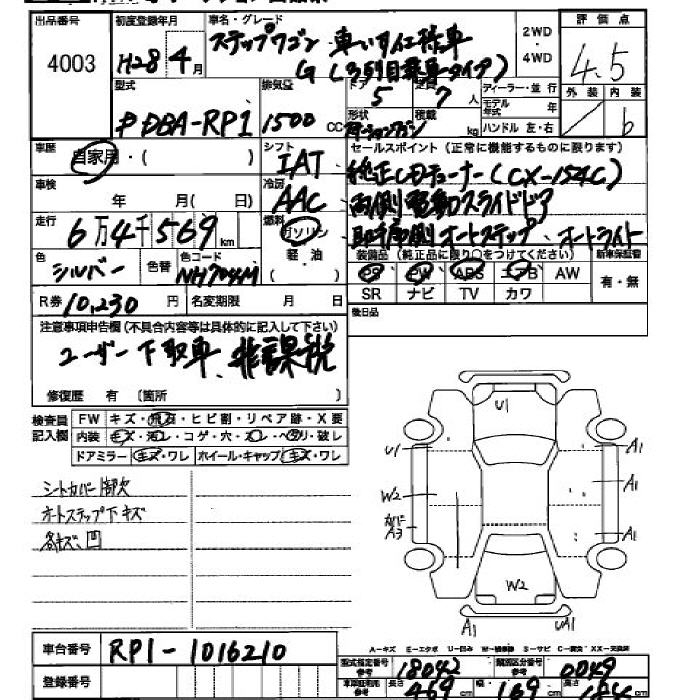 出品番号 初度登録年月 車名・グレード 2WD・4WD 評価点
4003 H28年4月 ステップワゴン 車いす仕様車 4.5
G(3列目乗車タイプ)
型式 排気量 ドア 5 定員 7人 ディーラー・並行 外装 内装
DBA-RP1 1500cc 形状 ステーションワゴン 積載 kg モデル年式 年 ハンドル 左・右 b
車歴 自家用・( ) シフト IAT セールスポイント(正常に機能するものに限ります)
車検 年 月( 日) 冷房 AAC 純正CDチューナー(CX-154C)
両側電動スライドドア
走行 6万4千569km 燃料 ガソリン・軽油 助手席側オートステップ オートライト
色 シルバー 色替 色コード NH704M 装備品(純正品に限り○をつけてください) 新車保証書
PS PW ABS エアB AW 有・無
R券 10,230円 名変期限 月 日 SR ナビ TV カワ
後日品
注意事項申告欄(不具合内容等は具体的に記入して下さい)
ユーザー下取車 非課税
修復歴 有 〔箇所 〕
検査員記入欄 FW キズ・飛石・ヒビ割・リペア跡・X要
内装 キズ・汚レ・コゲ・穴・スレ・ヘタリ・破レ
ドアミラー キズ・ワレ ホイール・キャップ キズ・ワレ
シートカバー1部欠
オートステップ下キズ
各キズ、凹
U1
U1 A1
W2 A1
カバーA3 A1
W2
A1 UA1
A-キズ E-エクボ U-凹み W-補修跡 S-サビ C-腐食 XX-交換済
車台番号 RP1-1016210
型式指定番号 参考 18042 類別区分番号 参考 0049
登録番号 車車証明用 参考 長さ 469cm 幅 169cm 高さ 184cm